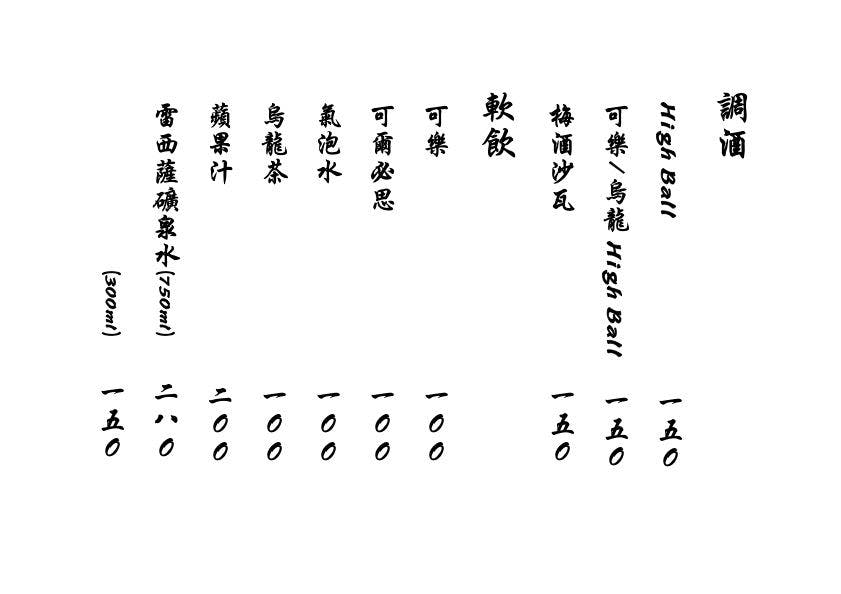 調酒
High Ball 一五0
可樂/烏龍 High Ball 一五0
梅酒沙瓦 一五0
軟飲
可樂 一00
可爾必思 一00
氣泡水 一00
烏龍茶 一00
蘋果汁 二00
雷西薩礦泉水(750ml) 二八0
(300ml) 一五0